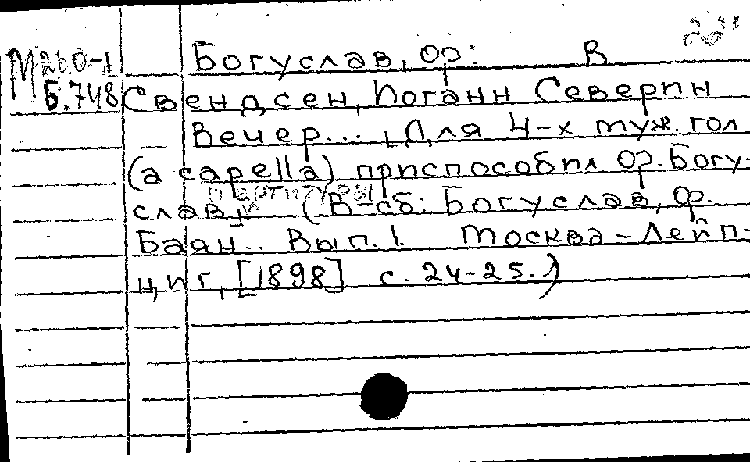 М260-1 Богуслав, Ор: В
Б.748 Свендсен, Иоганн Северин
Вечер..., Для 4-х муж. гол
(a capella) приспособил Ор. Богу-
партитуры
слав, (В сб: Богуслав, Ор.
Баян.. Вып. 1 Москва-Лейп-
циг, [1898] с. 24-25.)